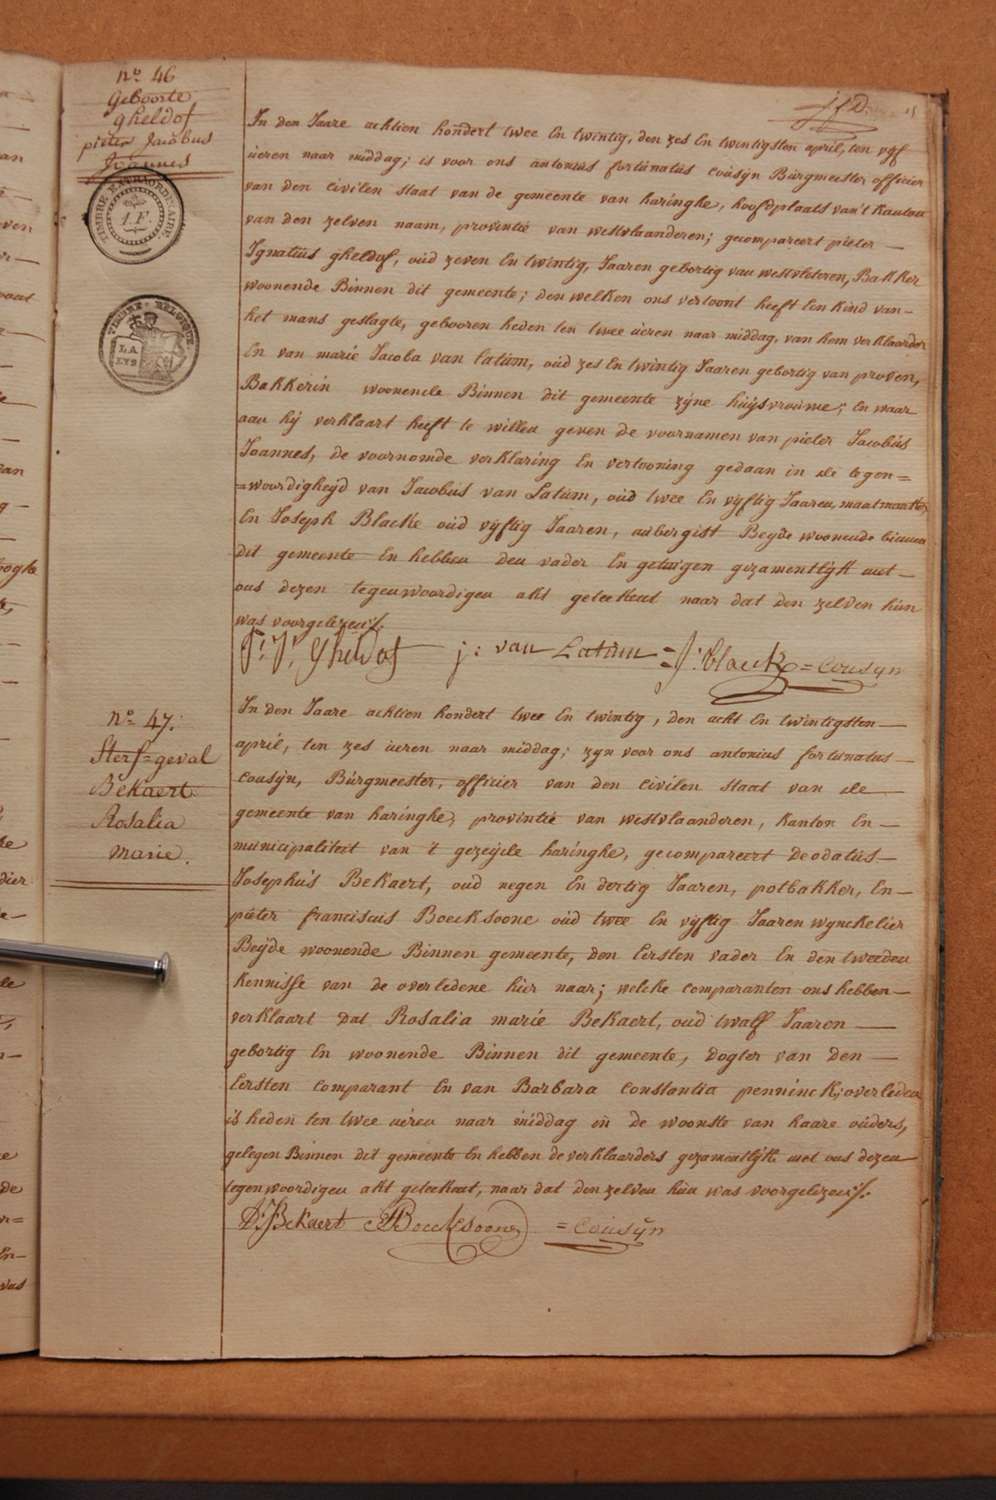 n.o 46
Geboorte
gheldof
pieter Jacobus
Joannes
TIMBRE EXTRAORDINAIRE.
1. F.
TIMBRE BELGIQUE
LA
LYS
In den Jaare achtien hondert twee En twintig, den zes En twintigsten april, ten vyf
ueren naar middag; is voor ons antonius fortunatus cousyn Burgmeester officier
van den civilen staat van de gemeente van haringhe, hoofdplaats van't kanton
van den zelven naam, provintie van westvlaanderen; gecompareert pieter —
Ignatius gheldof, oud zeven En twintig, Jaaren gebortig van westvleteren, Bakker
woonende Binnen dit gemeente; den welken ons vertoont heeft Een kind van —
het mans geslagte, gebooren heden ten twee ueren naar middag, van hem verklaarder
En van marie Jacoba van Catum, oud zes En twintig Jaaren gebortig van proven,
Bakkerin woonende Binnen dit gemeente zyne huysvrouwe; En waar
aan hy verklaart heeft te willen geven de voornamen van pieter Jacobus
Joannes, de voornomde verklaring En vertooning gedaan in de tegen=
=woordigheyd van Jacobus van Latum, oud twee En vyftig Jaaren, maatmaaker
En Joseph Blacke oud vyftig Jaaren, aubergist Beyde woonende binnen
dit gemeente En hebben den vader En getuigen gezamentlyk met —
ons dezen tegenwoordigen akt geteekent naar dat den zelven hun
was voorgelezen.
P: J: Gheldof j: van Latum = J: blacke = Cousyn
n.o 47.
Sterf=geval
Bekaert
Rosalia
Marie.
In den Jaare achtien hondert twee En twintig, den acht En twintigsten —
april, ten zes ueren naar middag; zyn voor ons antonius fortunatus —
cousyn, Burgmeester, officier van den civilen staat van de —
gemeente van haringhe, provintie van westvlaanderen, kanton En —
municipaliteit van 't gezeyde haringhe, gecompareert Deodatus —
Josephus Bekaert, oud negen En dertig Jaaren, potbakker, En —
pieter franciscus Boecksoone oud twee En vyftig Jaaren wynckelier
Beyde woonende Binnen gemeente, den Eersten vader En den tweeden
kennisse van de overledene hier naar; welcke comparanten ons hebben —
verklaart dat Rosalia marie Bekaert, oud twalf Jaaren —
gebortig En woonende Binnen dit gemeente, dogter van den —
Eersten comparant En van Barbara constantia penninck; overleden
is heden ten twee ueren naar middag in de woonste van haare ouders,
gelegen Binnen dit gemeente En hebben de verklaarders gezamentlyk met ons dezen
tegenwoordigen akt geteekent, naar dat den zelven hun was voorgelezen.
D: J: Bekaert Boecksoone = Cousyn